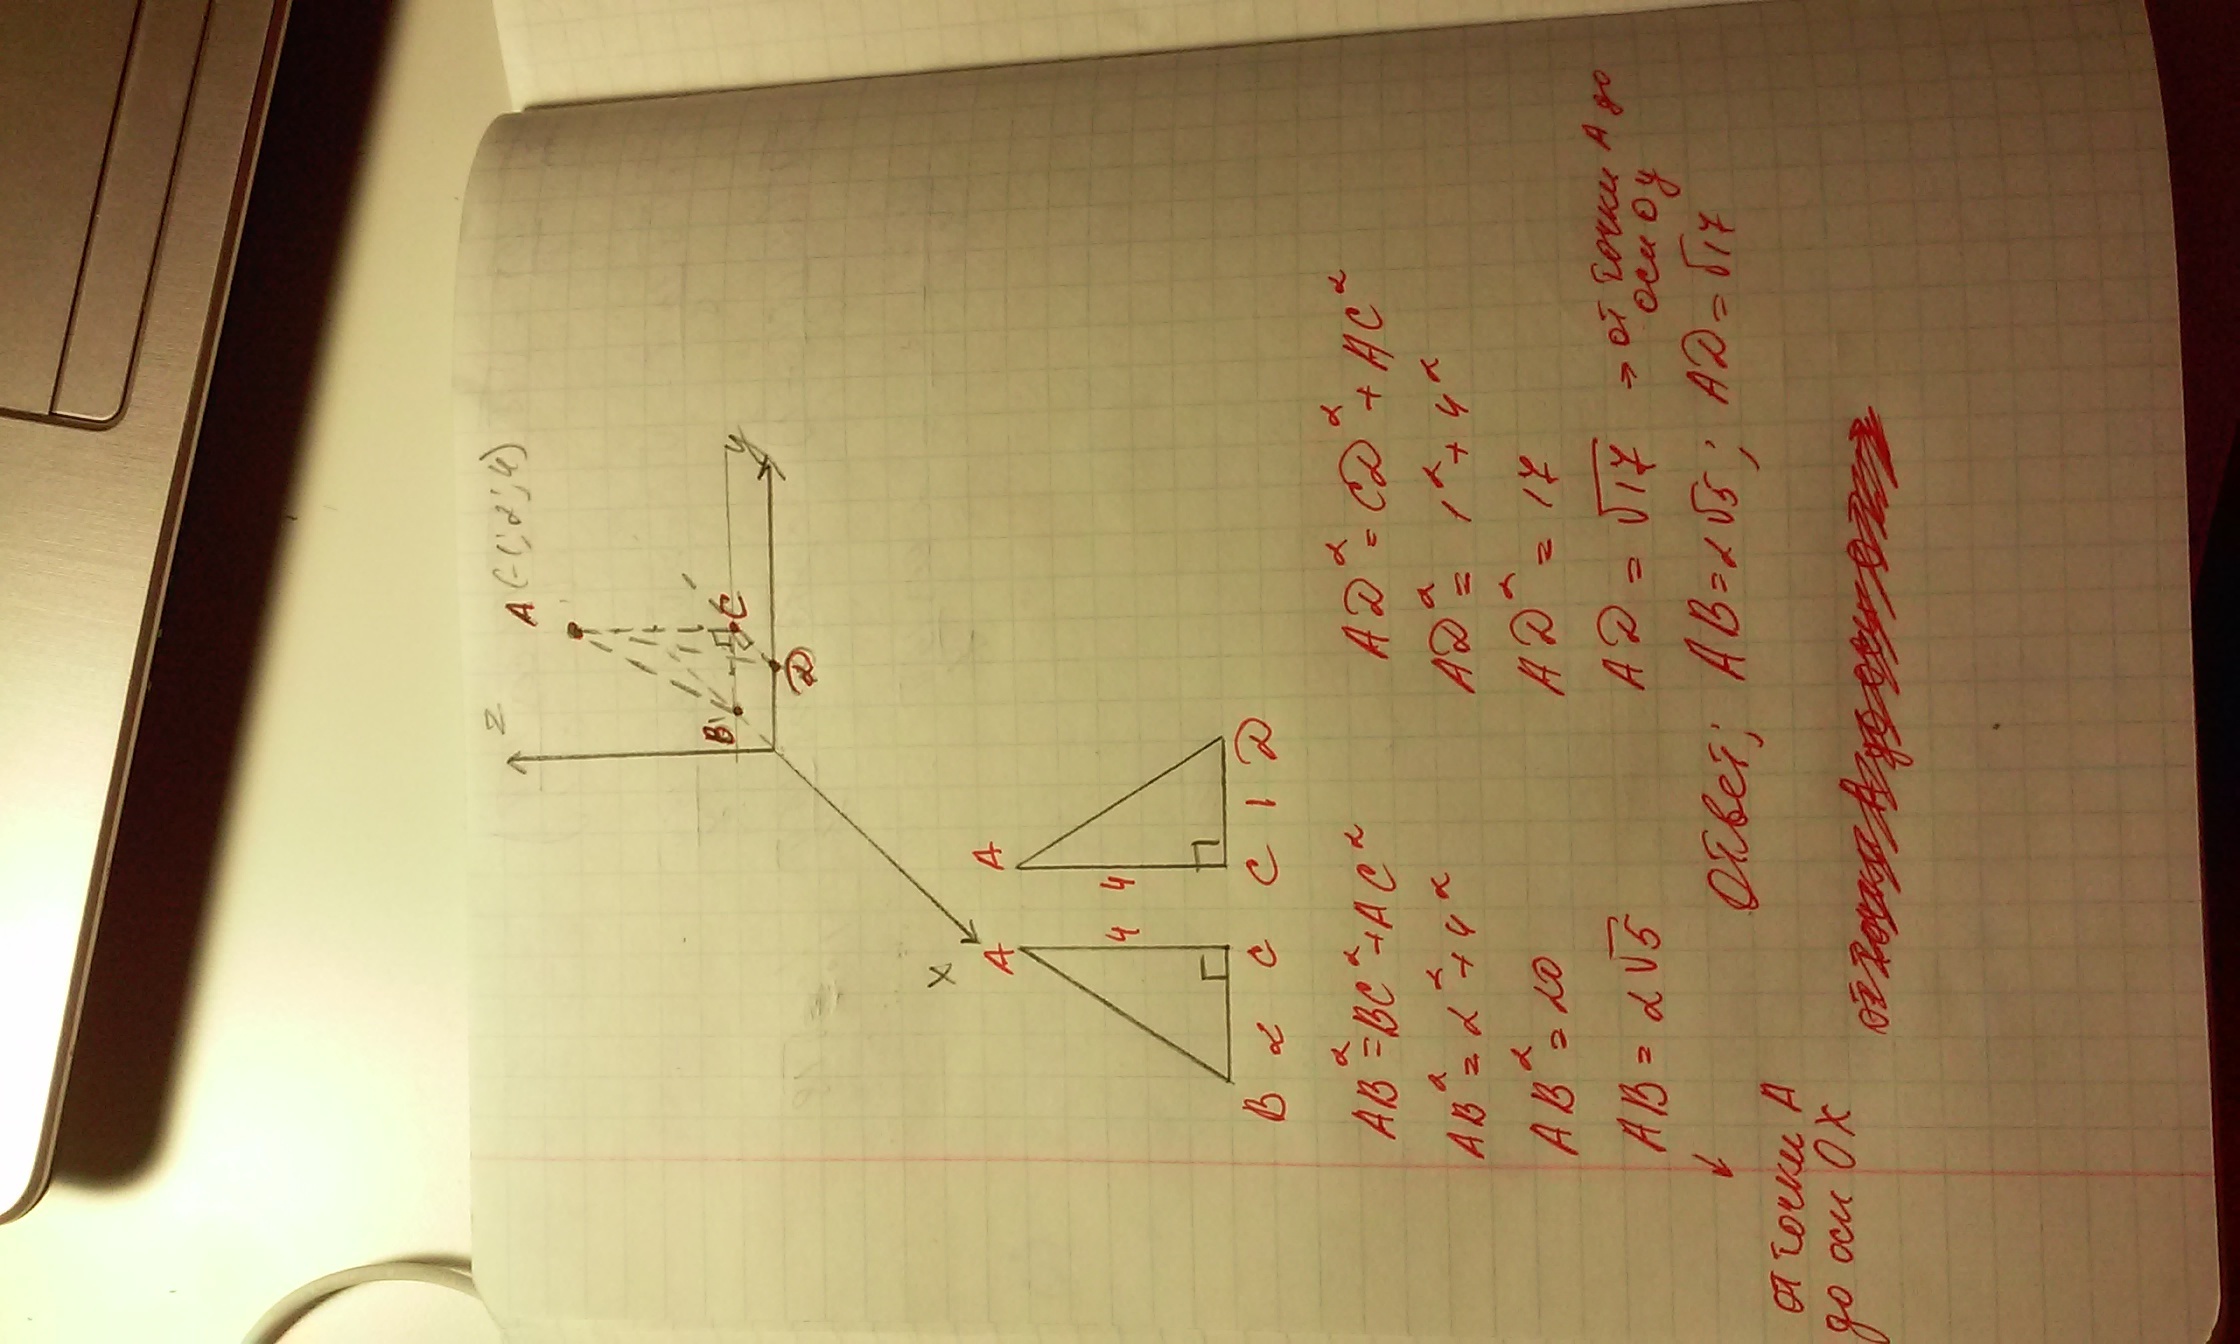 A(-1;2;4)
z
A
B
C
y
D
x
A
4
B 2 C
A
4
C 1 D
AB² = BC² + AC²
AB² = 2² + 4²
AB² = 20
AB = 2√5
↓
от точки A
до оси OX
AD² = CD² + AC²
AD² = 1² + 4²
AD² = 17
AD = √17 ⇒ от точки A до
оси Oy
Ответ: AB = 2√5; AD = √17